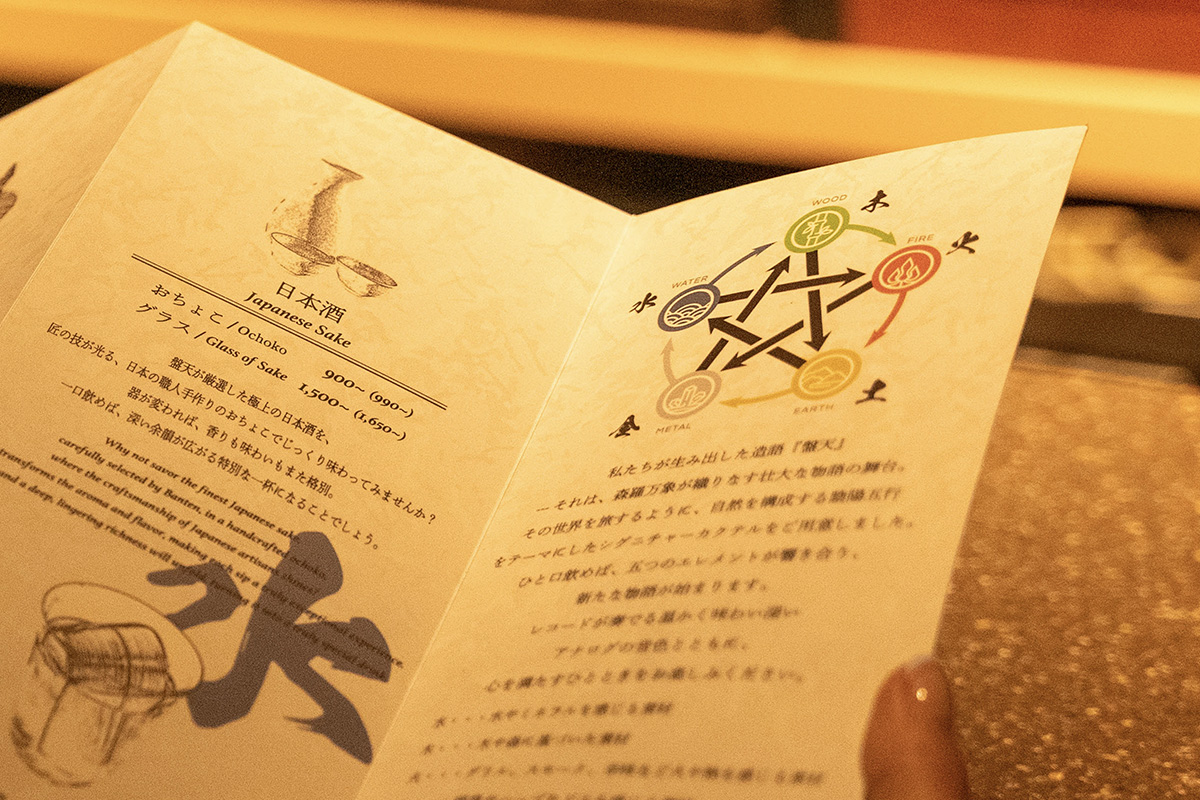 日本酒
Japanese Sake
おちょこ / Ochoko 900~ (990~)
グラス / Glass of Sake 1,500~ (1,650~)
盤天が厳選した極上の日本酒を、
匠の技が光る、日本の職人手作りのおちょこでじっくり味わってみませんか？
器が変われば、香りも味わいもまた格別。
一口飲めば、深い余韻が広がる特別な一杯になることでしょう。
Why not savor the finest Japanese sake,
carefully selected by Banten, in a handcrafted ochoko,
where the craftsmanship of Japanese artisans shines?
transforms the aroma and flavor, making each sip a truly exceptional experience.
and a deep, lingering richness will unfold, turning it into a truly special drink.
水
WOOD 木
FIRE 火
WATER 水
EARTH 土
METAL 金
私たちが生み出した造語『盤天』
ーそれは、森羅万象が織りなす壮大な物語の舞台。
その世界を旅するように、自然を構成する陰陽五行
をテーマにしたシグニチャーカクテルをご用意しました。
ひと口飲めば、五つのエレメントが響き合う、
新たな物語が始まります。
レコードが奏でる温かく味わい深い
アナログの音色とともに、
心を満たすひとときをお楽しみください。
水・・・水やミネラルを感じる素材
木・・・木や森に基づいた素材
火・・・グリル、スモーク、